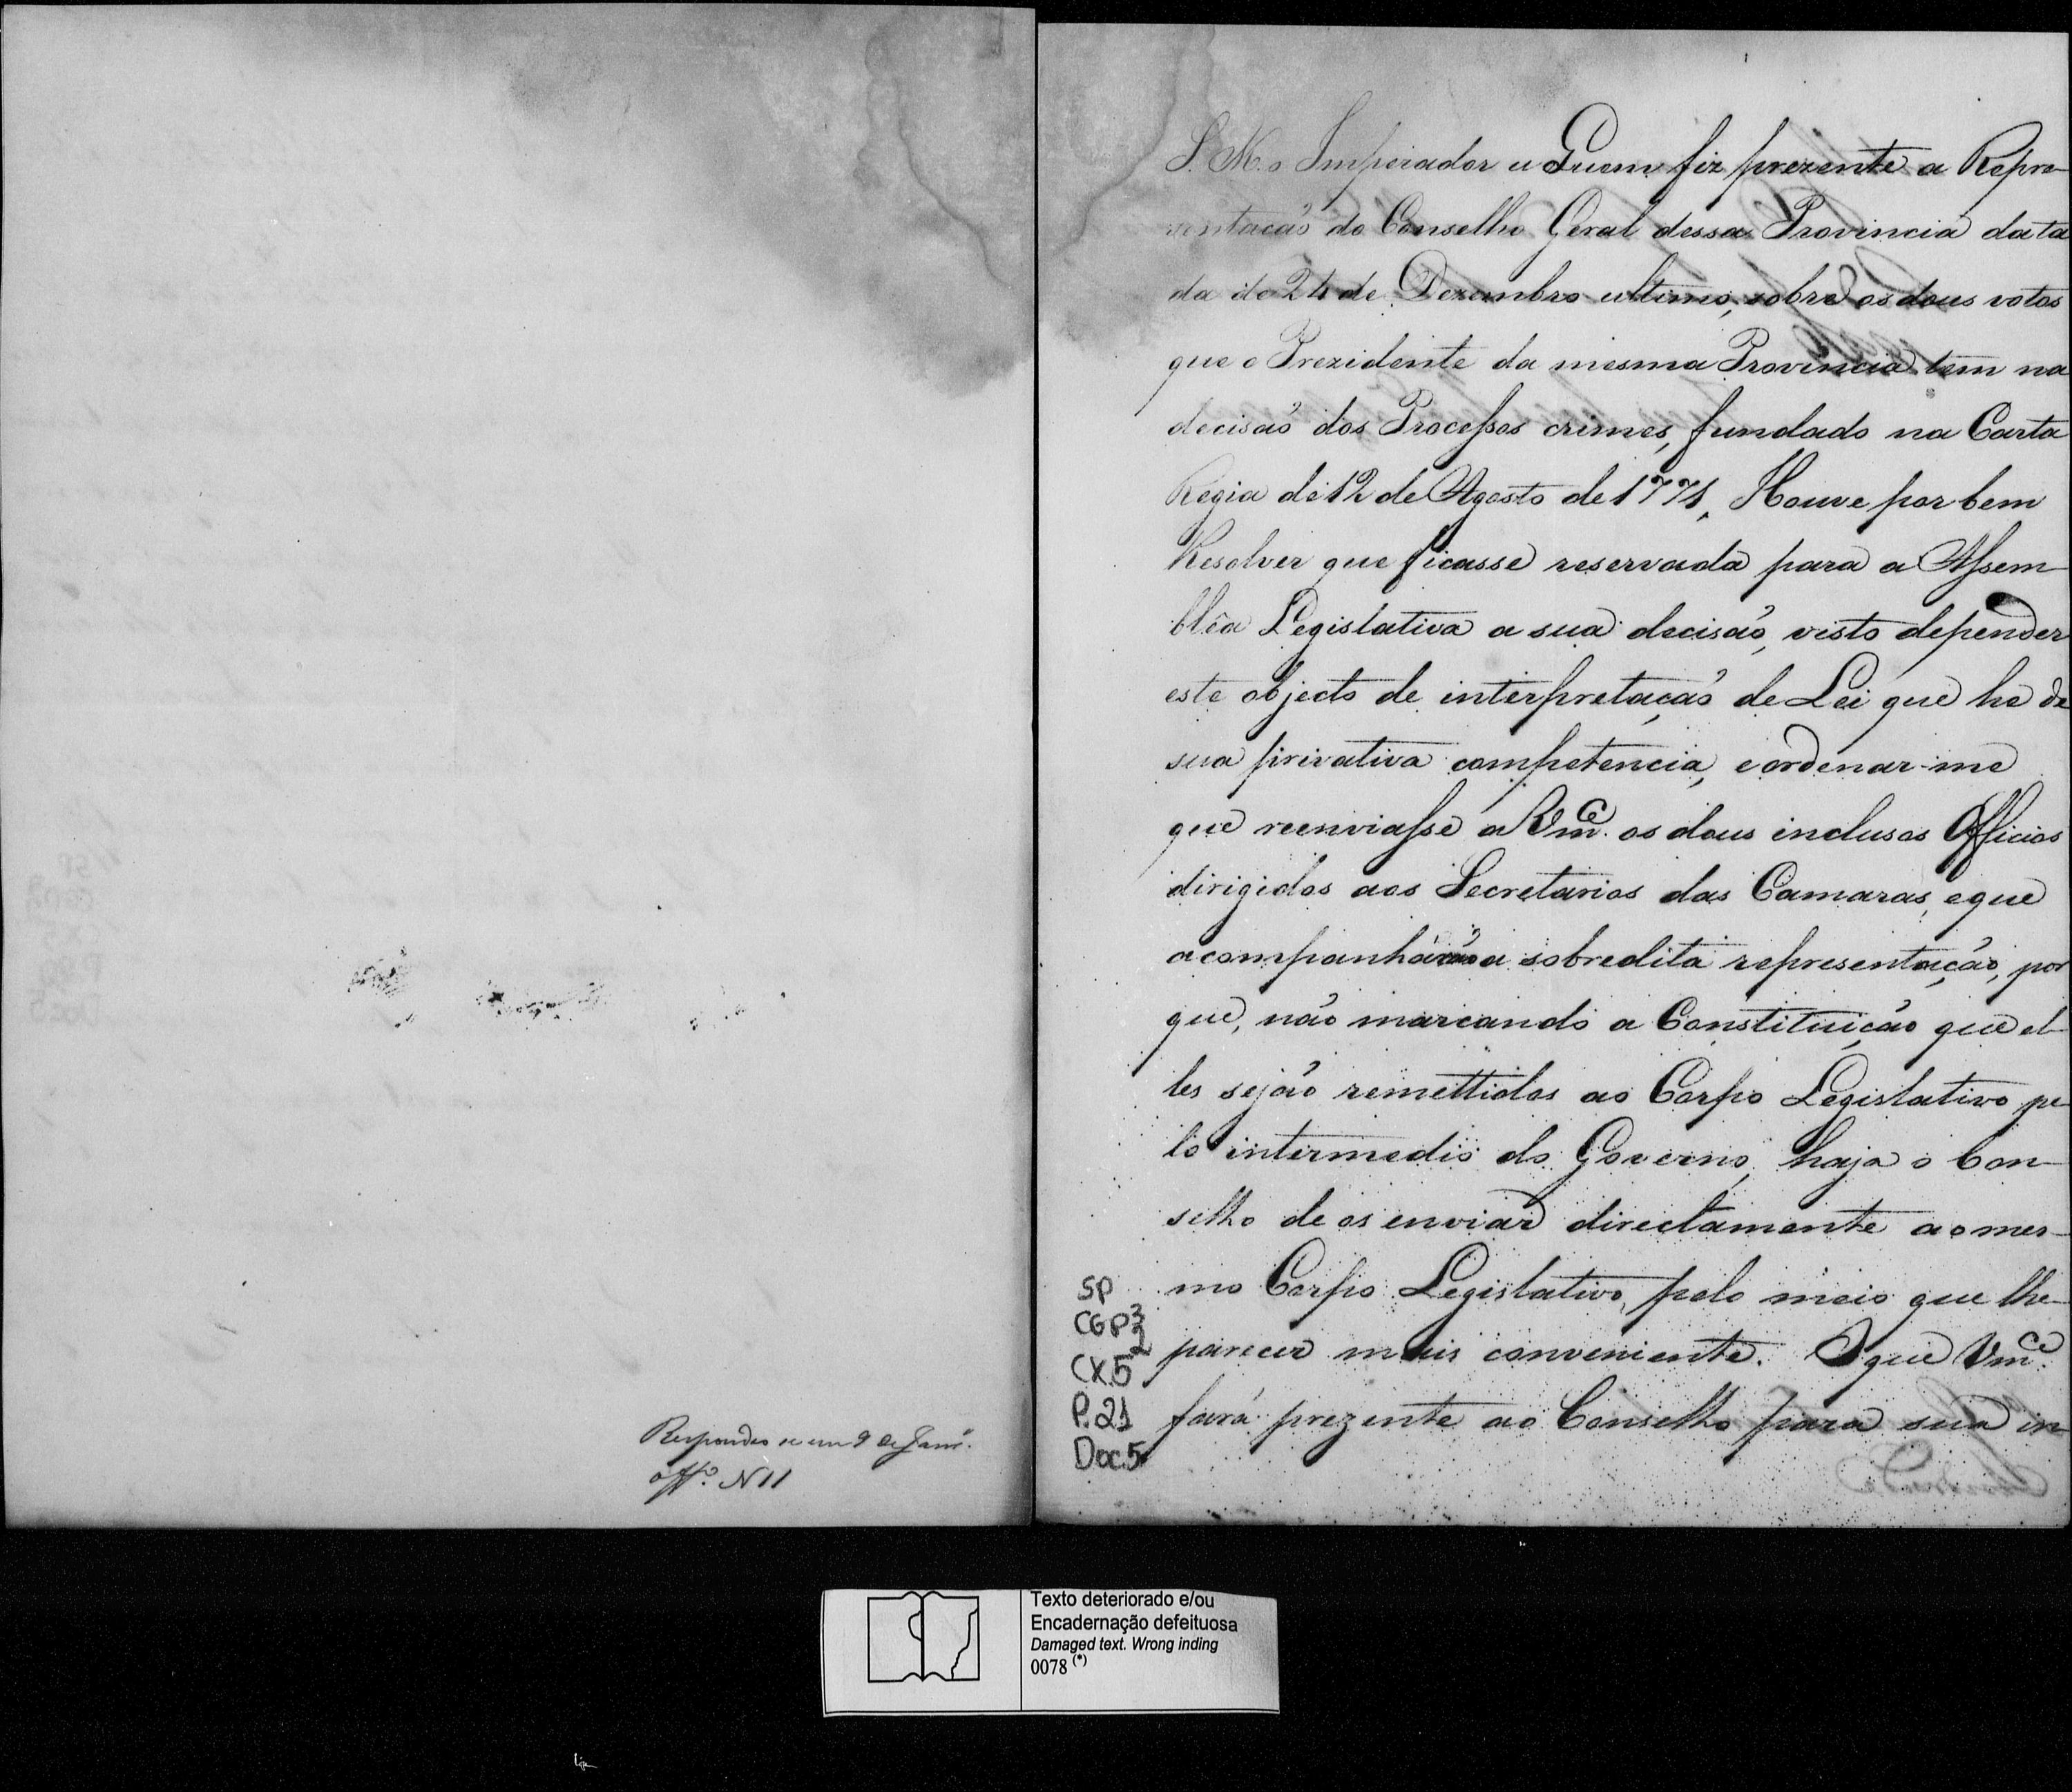 Respondeo se em 9 de Janr.º
off.º N 11
S. M. o Imperador a Quem fiz prezente a Repre-
zentacaõ do Conselho Geral dessa Provincia data
da de 24 de Dezembro ultimo, sobre os dous votos
que o Prezidente da mesma Provincia tem na
decisaõ dos Processos crimes, fundado na Carta
Regia de 12 de Agosto de 1771, Houve por bem
Resolver que ficasse reservada para a Assem-
bléa Legislativa a sua decisaõ, visto depender
este objecto de interpretaçaõ de Lei que he de
sua privativa competencia, e ordenar-me
que reenviasse a Vm.ce os dous inclusos Officios
dirigidos aos Secretarios das Camaras, e que
acompanháraõ a sobredita representaçaõ, por
que, naõ marcando a Constituiçaõ que el-
les sejaõ remettidos ao Corpo Legislativo pe-
lo intermedio do Governo, haja o Con-
selho de os enviar directamente ao mes-
mo Corpo Legislativo, pelo meio que lhe
parecer mais conveniente. O que Vm.ce
fará prezente ao Conselho para sua in
SP
CGP3
2
CX.5
P.21
Doc.5
Texto deteriorado e/ou
Encadernação defeituosa
Damaged text. Wrong inding
0078 (*)